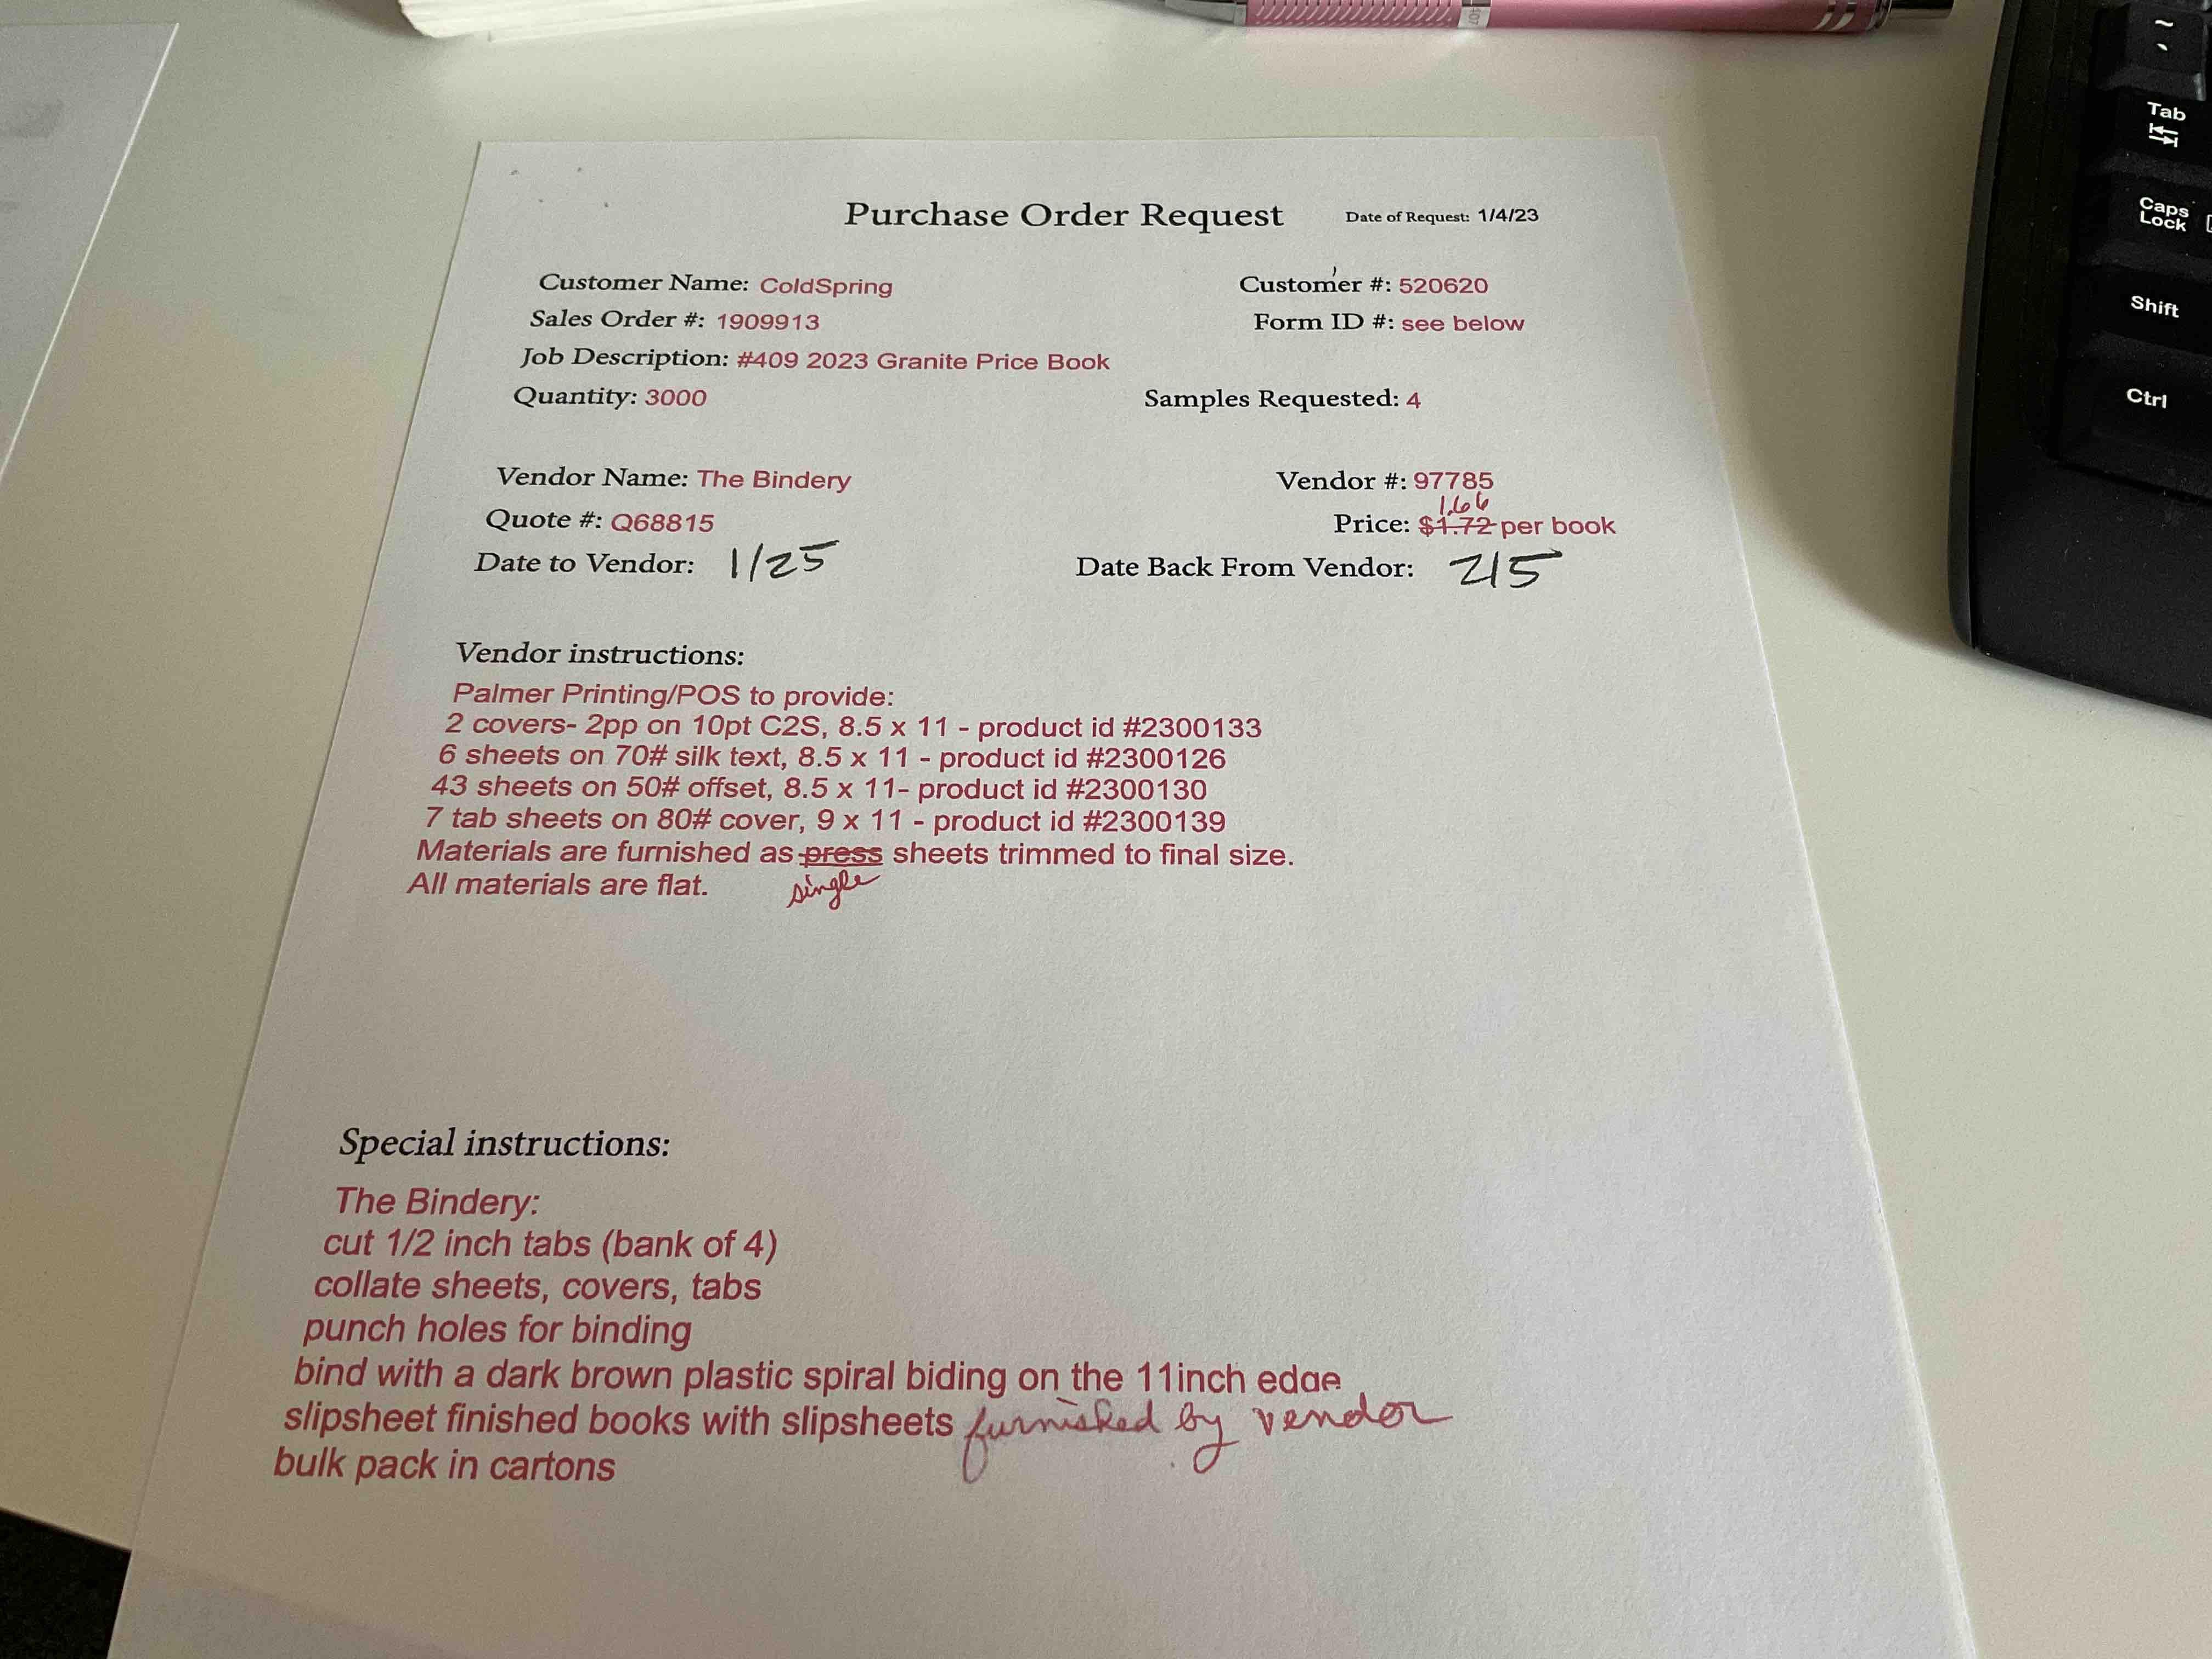 107
~
`
Tab
Caps Lock
Shift
Ctrl
Purchase Order Request Date of Request: 1/4/23
Customer Name: ColdSpring Customer #: 520620
Sales Order #: 1909913 Form ID #: see below
Job Description: #409 2023 Granite Price Book
Quantity: 3000 Samples Requested: 4
Vendor Name: The Bindery Vendor #: 97785
1.66
Quote #: Q68815 Price: $1.72 per book
Date to Vendor: 1/25 Date Back From Vendor: 2/5
Vendor instructions:
Palmer Printing/POS to provide:
2 covers- 2pp on 10pt C2S, 8.5 x 11 - product id #2300133
6 sheets on 70# silk text, 8.5 x 11 - product id #2300126
43 sheets on 50# offset, 8.5 x 11- product id #2300130
7 tab sheets on 80# cover, 9 x 11 - product id #2300139
Materials are furnished as press sheets trimmed to final size.
All materials are flat. single
Special instructions:
The Bindery:
cut 1/2 inch tabs (bank of 4)
collate sheets, covers, tabs
punch holes for binding
bind with a dark brown plastic spiral biding on the 11inch edge
slipsheet finished books with slipsheets furnished by vendor
bulk pack in cartons